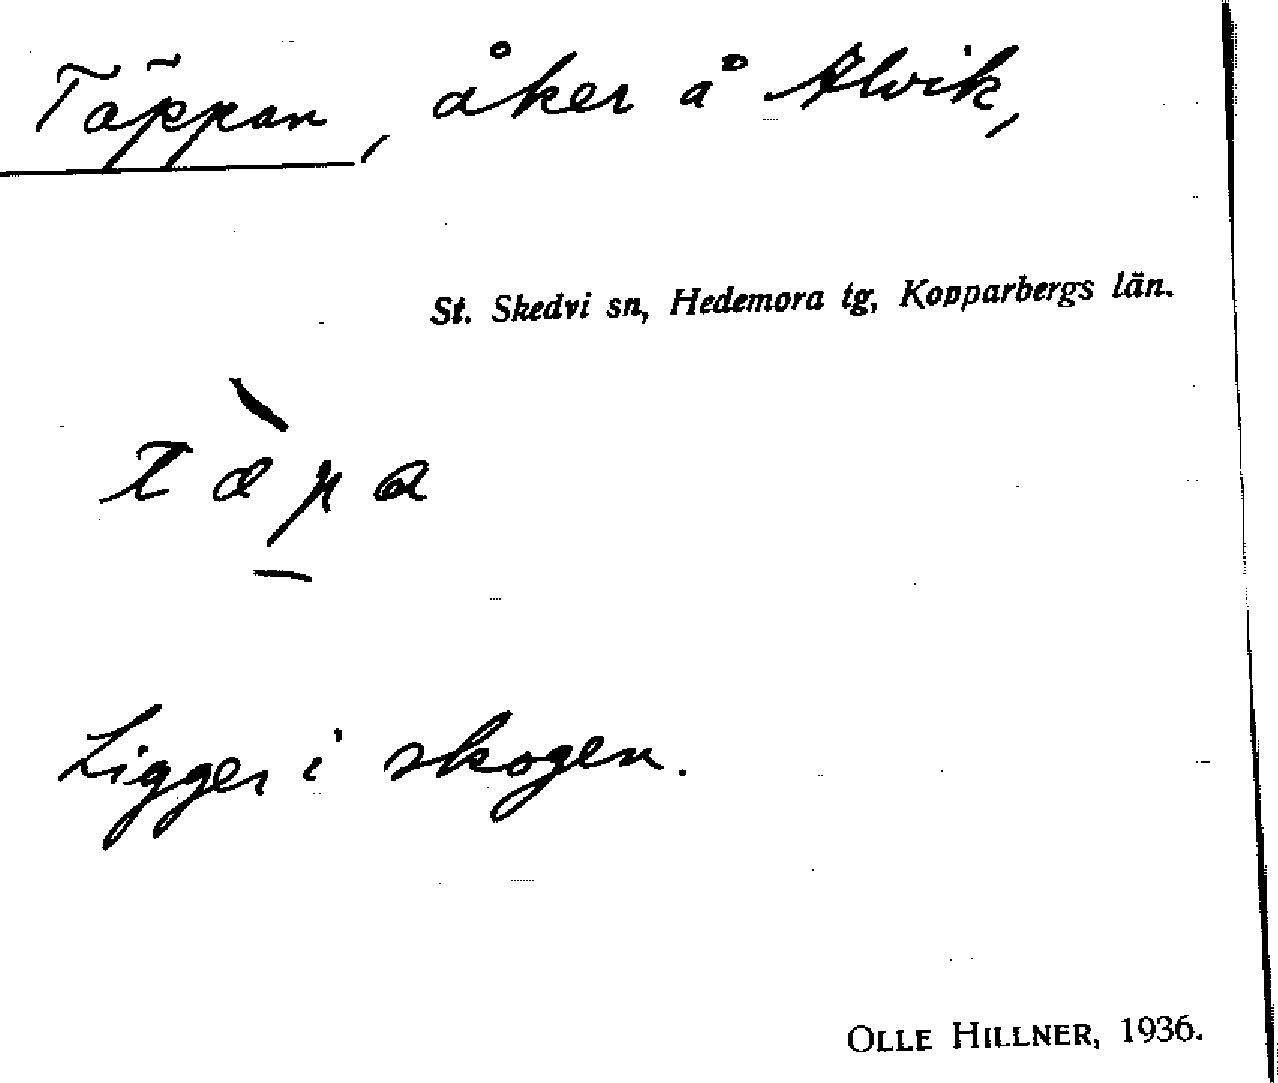 Täppan, åker å Alvik,
St. Skedvi sn, Hedemora tg, Kopparbergs län.
Ligger i skogen.
OLLE HILLNER, 1936.